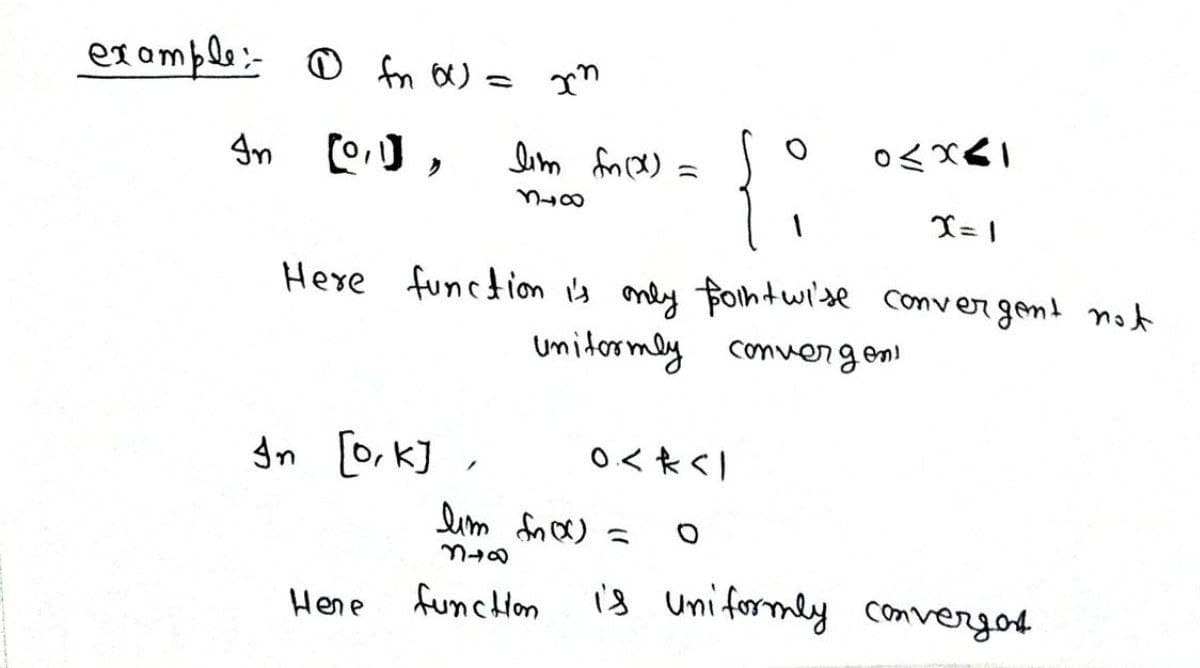 example:- ① fn(x) = xⁿ
In [0,1], lim n→∞ fn(x) = { 0 0≤x<1
1 x=1
Here function is only pointwise convergent not
uniformly convergent
In [0,K], 0<k<1
lim n→∞ fn(x) = 0
Here function is uniformly convergent